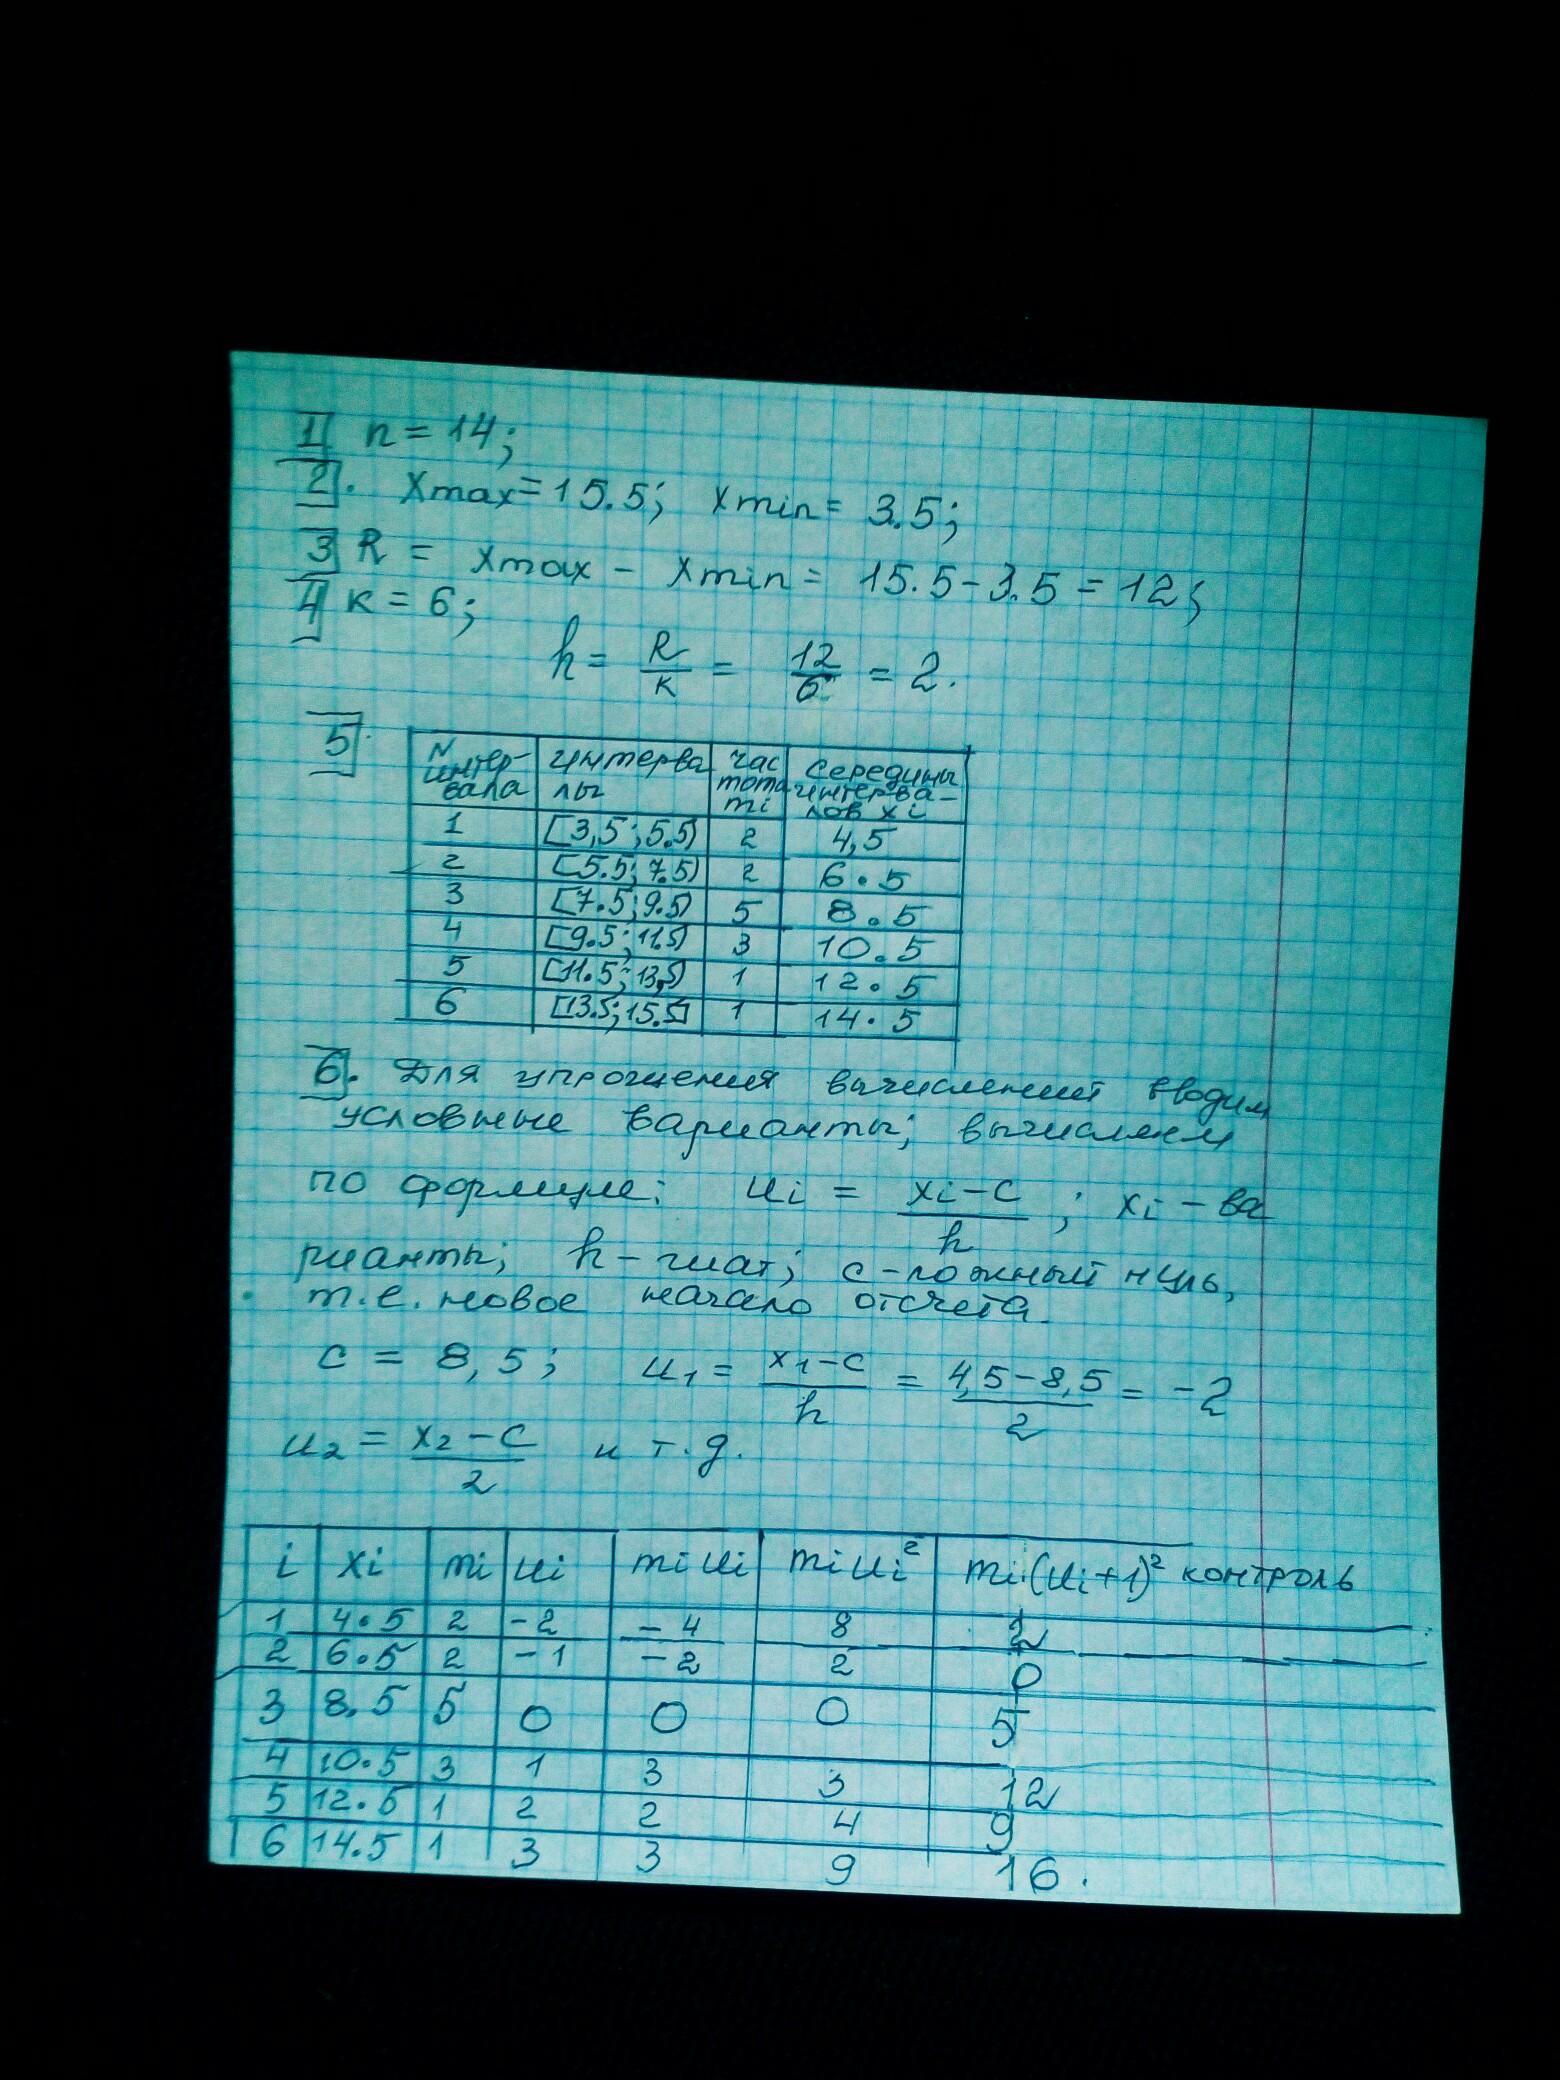 1 n = 14;
2. xmax = 15.5; xmin = 3.5;
3 R = xmax - xmin = 15.5 - 3.5 = 12;
4 к = 6;
h = R/к = 12/6 = 2.
5.
N интер- интерва час середины
интер- лы тота интерва-
вала mi лов xi
1 [3,5; 5.5) 2 4,5
2 [5.5; 7.5) 2 6.5
3 [7.5; 9.5) 5 8.5
4 [9.5; 11.5) 3 10.5
5 [11.5; 13,5) 1 12.5
6 [13.5; 15.5] 1 14.5
6. Для упрощения вычислений вводим
условные варианты; вычисляем
по формуле: ui = xi-c/h ; xi - ва
рианты; h - шаг; c - ложный нуль,
т.е. новое начало отсчета.
c = 8,5; u1 = x1-c/h = 4,5-8,5/2 = -2
u2 = x2-c/2 и т.д.
i xi mi ui mi ui mi ui² mi(ui+1)² контроль
1 4.5 2 -2 -4 8 2
2 6.5 2 -1 -2 2 0
3 8.5 5 0 0 0 5
4 10.5 3 1 3 3 12
5 12.5 1 2 2 4 9
6 14.5 1 3 3 9 16.